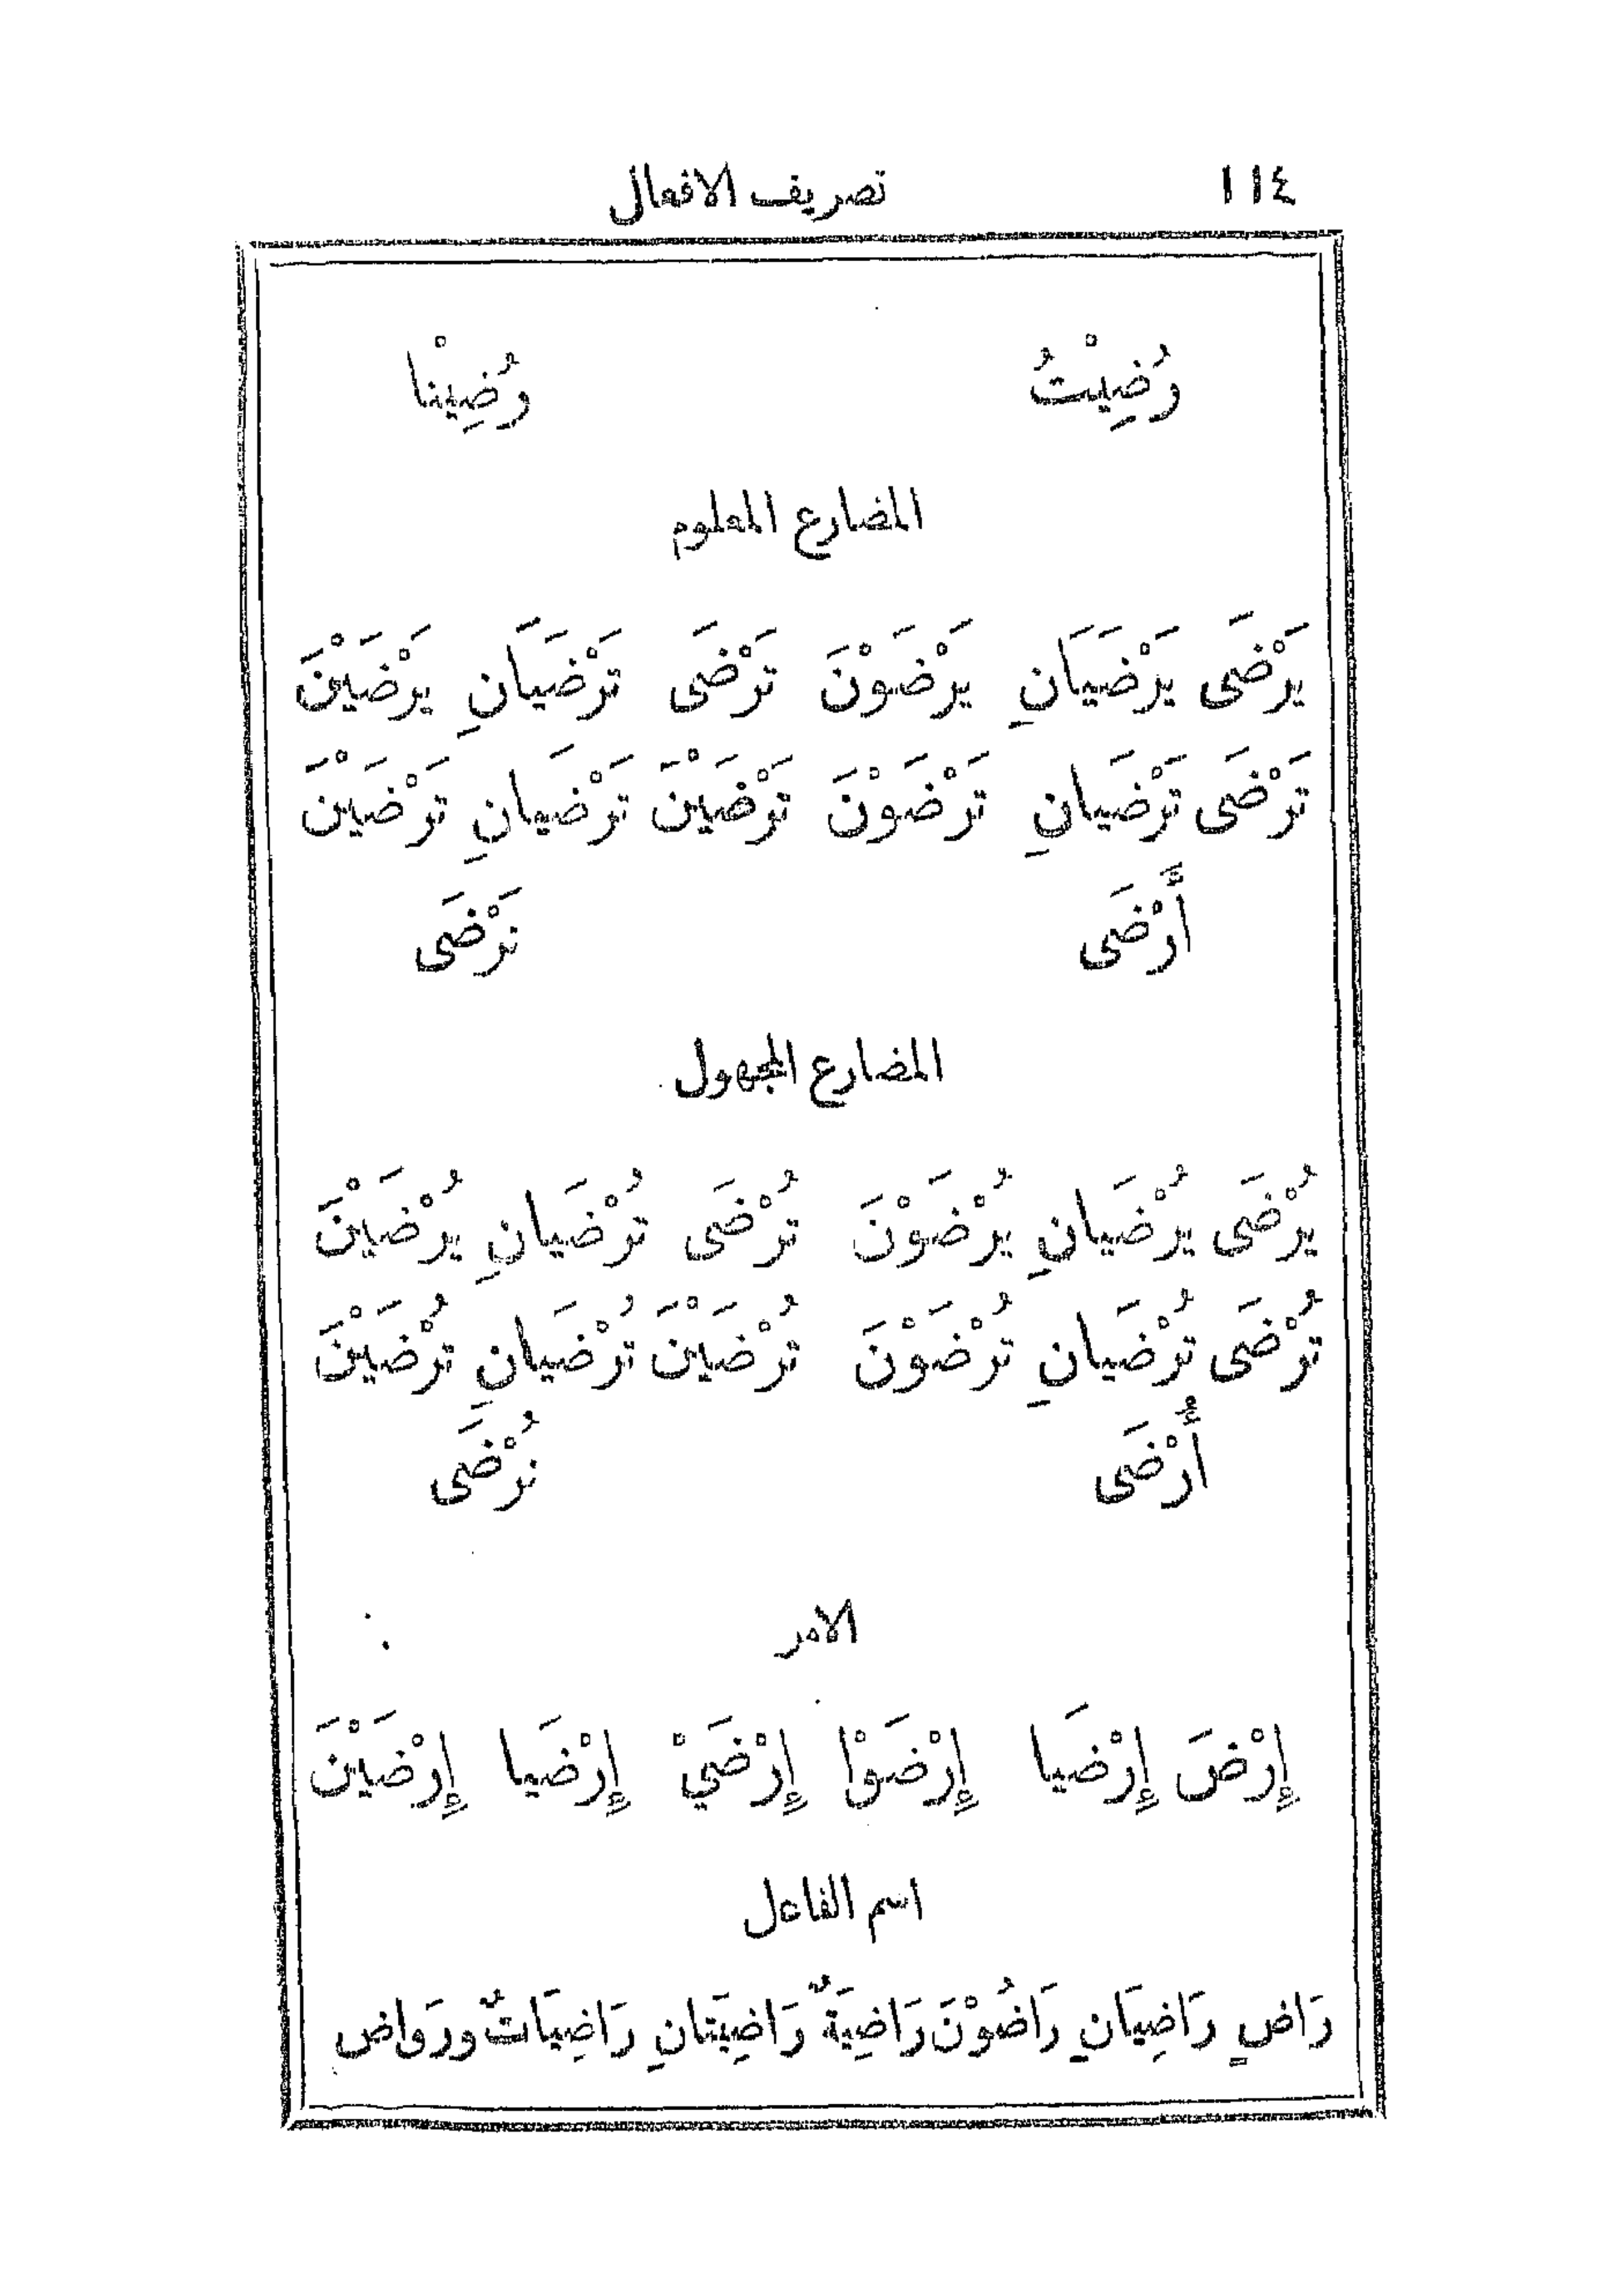 ١١٤ تصريف الافعال
رُضِيْتُ رُضِينْا
المضارع المعلوم
يَرْضَى يَرْضَيَانِ يَرْضَوْنَ تَرْضَى تَرْضَيَانِ يَرْضَيْنَ
تَرْضَى تَرْضَيانِ تَرْضَوْنَ تَرْضَيْنَ تَرْضَيانِ تَرْضَيْنَ
أَرْضَى نَرْضَى
المضارع المجهول
يُرْضَى يُرْضَيانِ يُرْضَوْنَ تُرْضَى تُرْضَيانِ يُرْضَيْنَ
تُرْضَى تُرْضَيانِ تُرْضَوْنَ تُرْضَيْنَ تُرْضَيانِ تُرْضَيْنَ
أُرْضَى نُرْضَى
الامر
إِرْضَ إِرْضَيا إِرْضَوْا إِرْضَيْ إِرْضَيا إِرْضَيْنَ
اسم الفاعل
رَاضٍ رَاضِيَانِ رَاضُوْنَ رَاضِيَةٌ رَاضِيَتانِ رَاضِيَاتٌ ورَواض